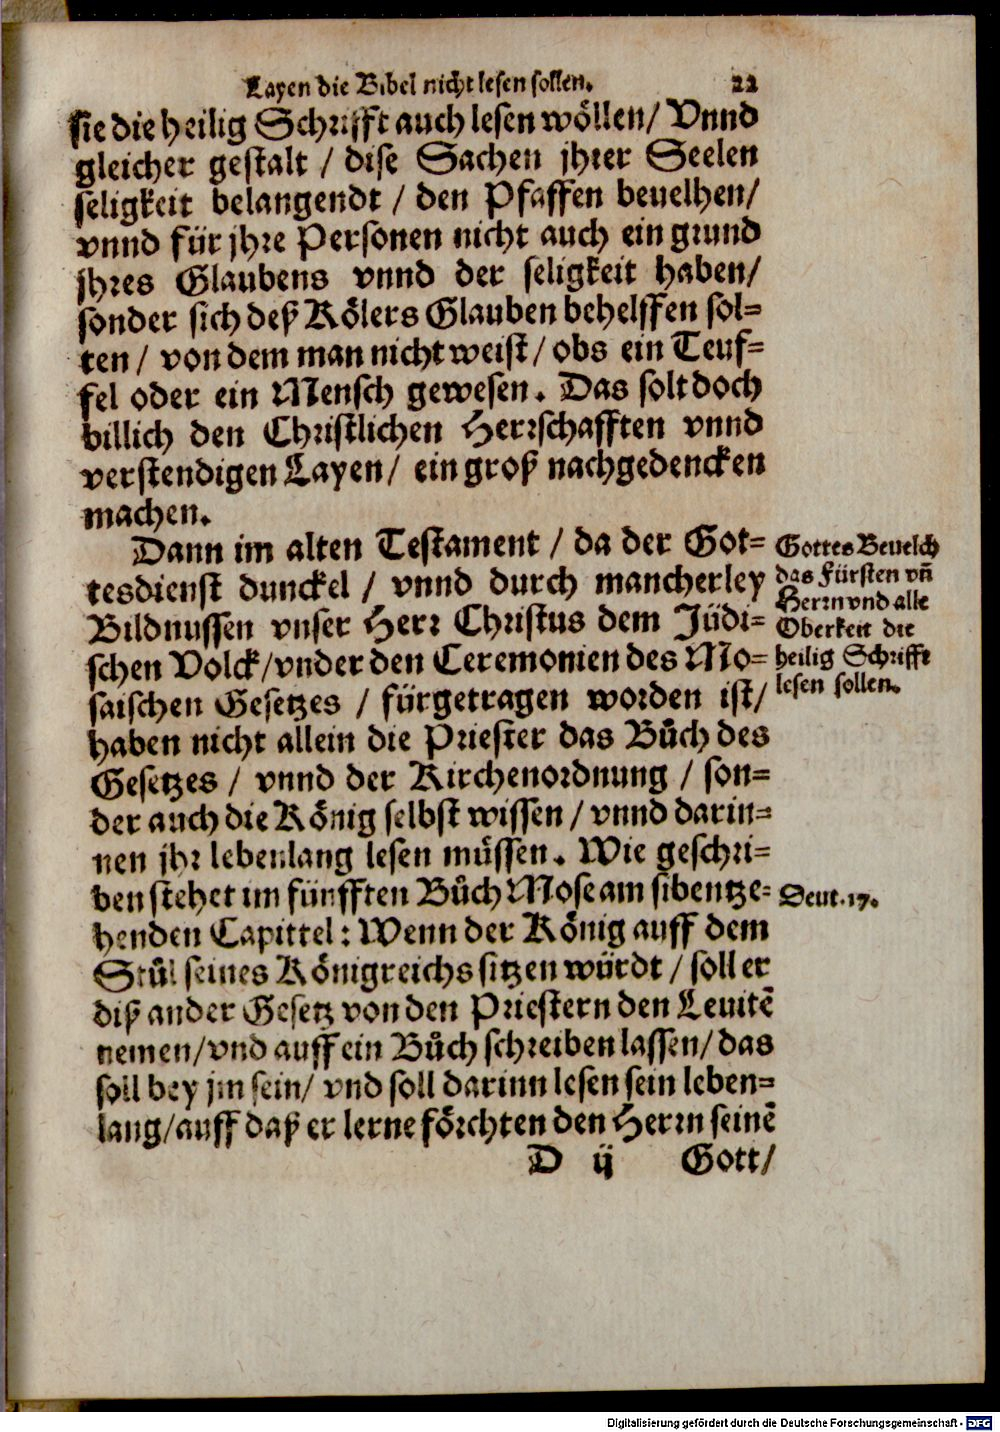 Layen die Bibel nicht lesen sollen. 22
sie die heilig Schrifft auch lesen wöllen/ Vnnd
gleicher gestalt / dise Sachen jhrer Seelen
seligkeit belangendt / den Pfaffen beuelhen/
vnnd für jhre Personen nicht auch ein grund
jhres Glaubens vnnd der seligkeit haben/
sonder sich deß Kölers Glauben behelffen sol=
ten / von dem man nicht weist / obs ein Teuf=
fel oder ein Mensch gewesen. Das solt doch
billich den Christlichen Herrschafften vnnd
verstendigen Layen / ein groß nachgedencken
machen.
Dann im alten Testament / da der Got=
tesdienst dunckel / vnnd durch mancherley
Bildnussen vnser Herr Christus dem Jüdi=
schen Volck/vnder den Ceremonien des Mo=
saischen Gesetzes / fürgetragen worden ist/
haben nicht allein die Priester das Bůch des
Gesetzes / vnnd der Kirchenordnung / son=
der auch die König selbst wissen / vnnd darin=
nen jhr lebenlang lesen müssen. Wie geschri=
ben stehet im fünfften Bůch Mose am sibentze=
henden Capittel: Wenn der König auff dem
Stůl seines Königreichs sitzen würdt / soll er
diß ander Gesetz von den Priestern den Leuitē
nemen/vnd auff ein Bůch schreiben lassen/ das
soll bey jm sein/ vnd soll darinn lesen sein leben=
lang/auff daß er lerne förchten den Herrn seinē
D ij Gott/
Gottes Beuelch
das Fürsten vñ
Herrn vnd alle
Oberkeit die
heilig Schrifft
lesen sollen.
Deut. 17.
Digitalisierung gefördert durch die Deutsche Forschungsgemeinschaft - DFG